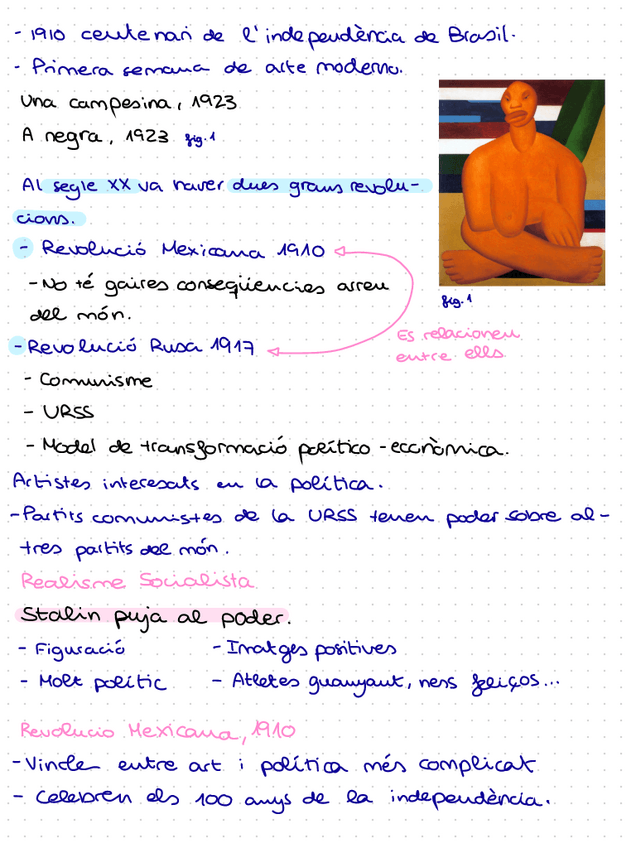 - 1910 centenari de l'independència de Brasil.
- Primera semana de arte moderno.
Una campesina, 1923
A negra, 1923 fig. 1
Al segle XX va haver dues grans revolu-
cions.
- Revolució Mexicana 1910
- No té gaires conseqüencies arreu
del món.
fig. 1
- Revolució Rusa 1917
Es relacionen
entre ells
- Comunisme
- URSS
- Model de transformació político-econòmica.
Artistes interesats en la política.
- Partits comunistes de la URSS tenen poder sobre al-
tres partits del món.
Realisme Socialista
Stalin puja al poder.
- Figuració - Imatges positives
- Molt polític - Atletes guanyant, nens feliços...
Revolucio Mexicana, 1910
- Vincle entre art i política més complicat
- Celebren els 100 anys de la independència.